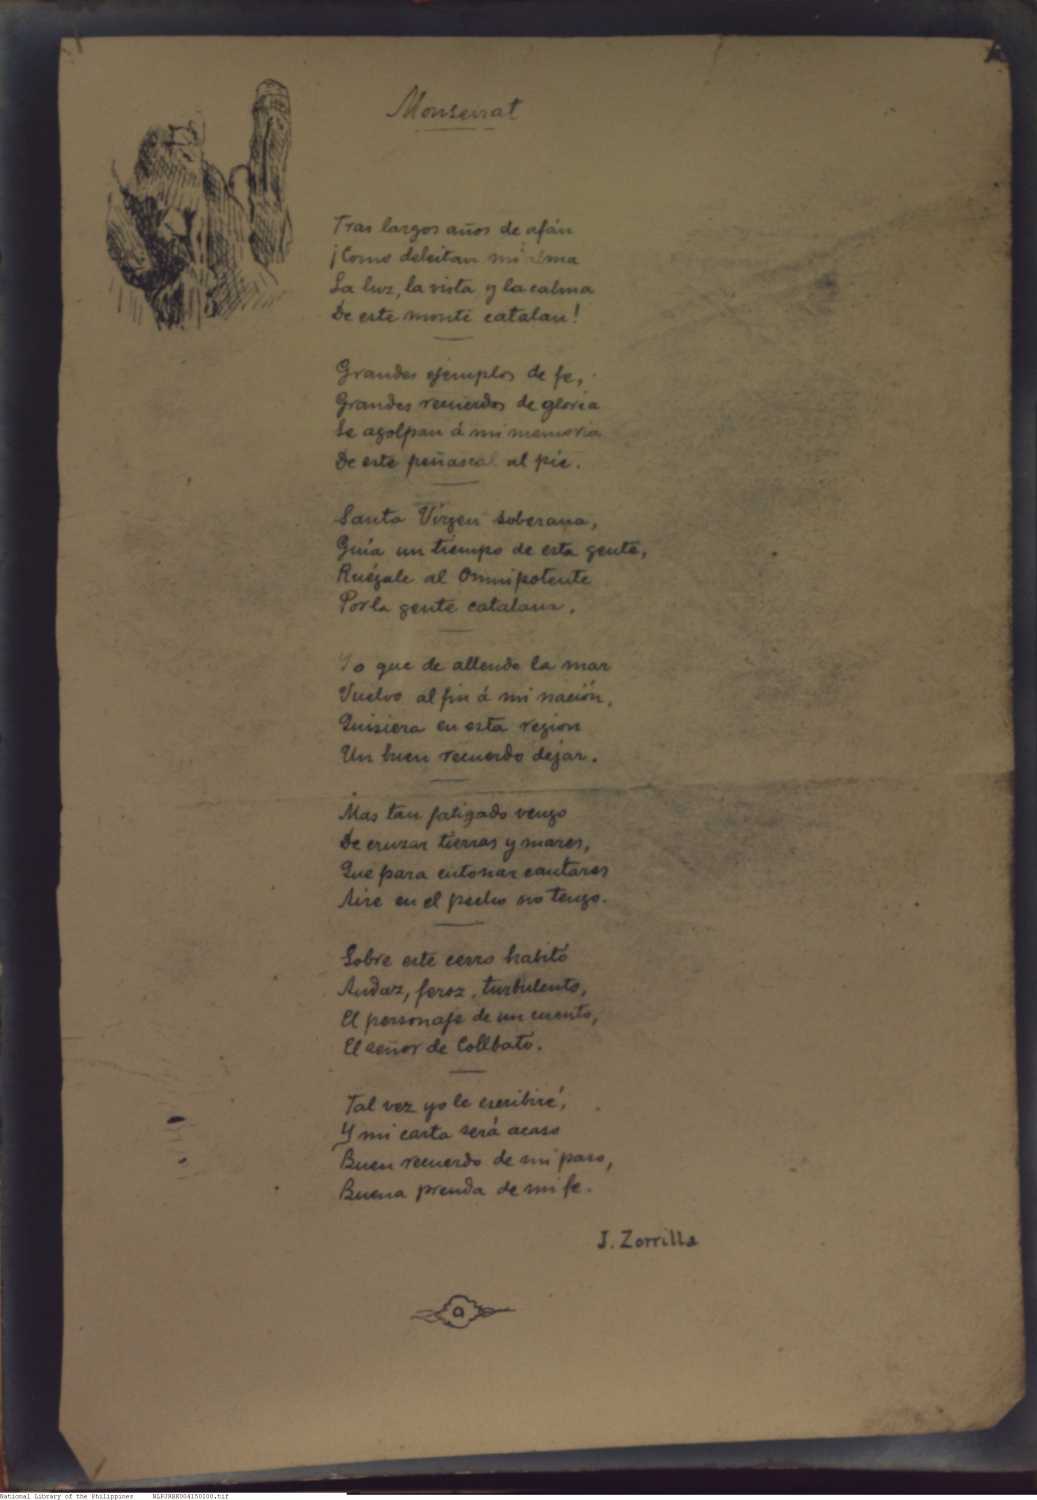 Monserrat
Tras largos años de afán
¡Como deleitan mi alma
La luz, la vista y la calma
De este monte catalan!
Grandes ejemplos de fe,
Grandes recuerdos de gloria
Se agolpan á mi memoria
De este peñascal al pie.
Santa Vírgen soberana,
Guía un tiempo de esta gente,
Ruégale al Omnipotente
Por la gente catalana.
Yo que de allende la mar
Vuelvo al fin á mi nación,
Quisiera en esta region
Un buen recuerdo dejar.
Mas tan fatigado vengo
De cruzar tierras y mares,
Que para entonar cantares
Aire en el pecho no tengo.
Sobre este cerro habitó
Audaz, feroz, turbulento,
El personaje de un cuento,
El señor de Collbató.
Tal vez yo le escribiré,
Y mi carta será acaso
Buen recuerdo de mi paso,
Buena prenda de mi fe.
J. Zorrilla
a
National Library of the Philippines NLPJRBK004150100.tif